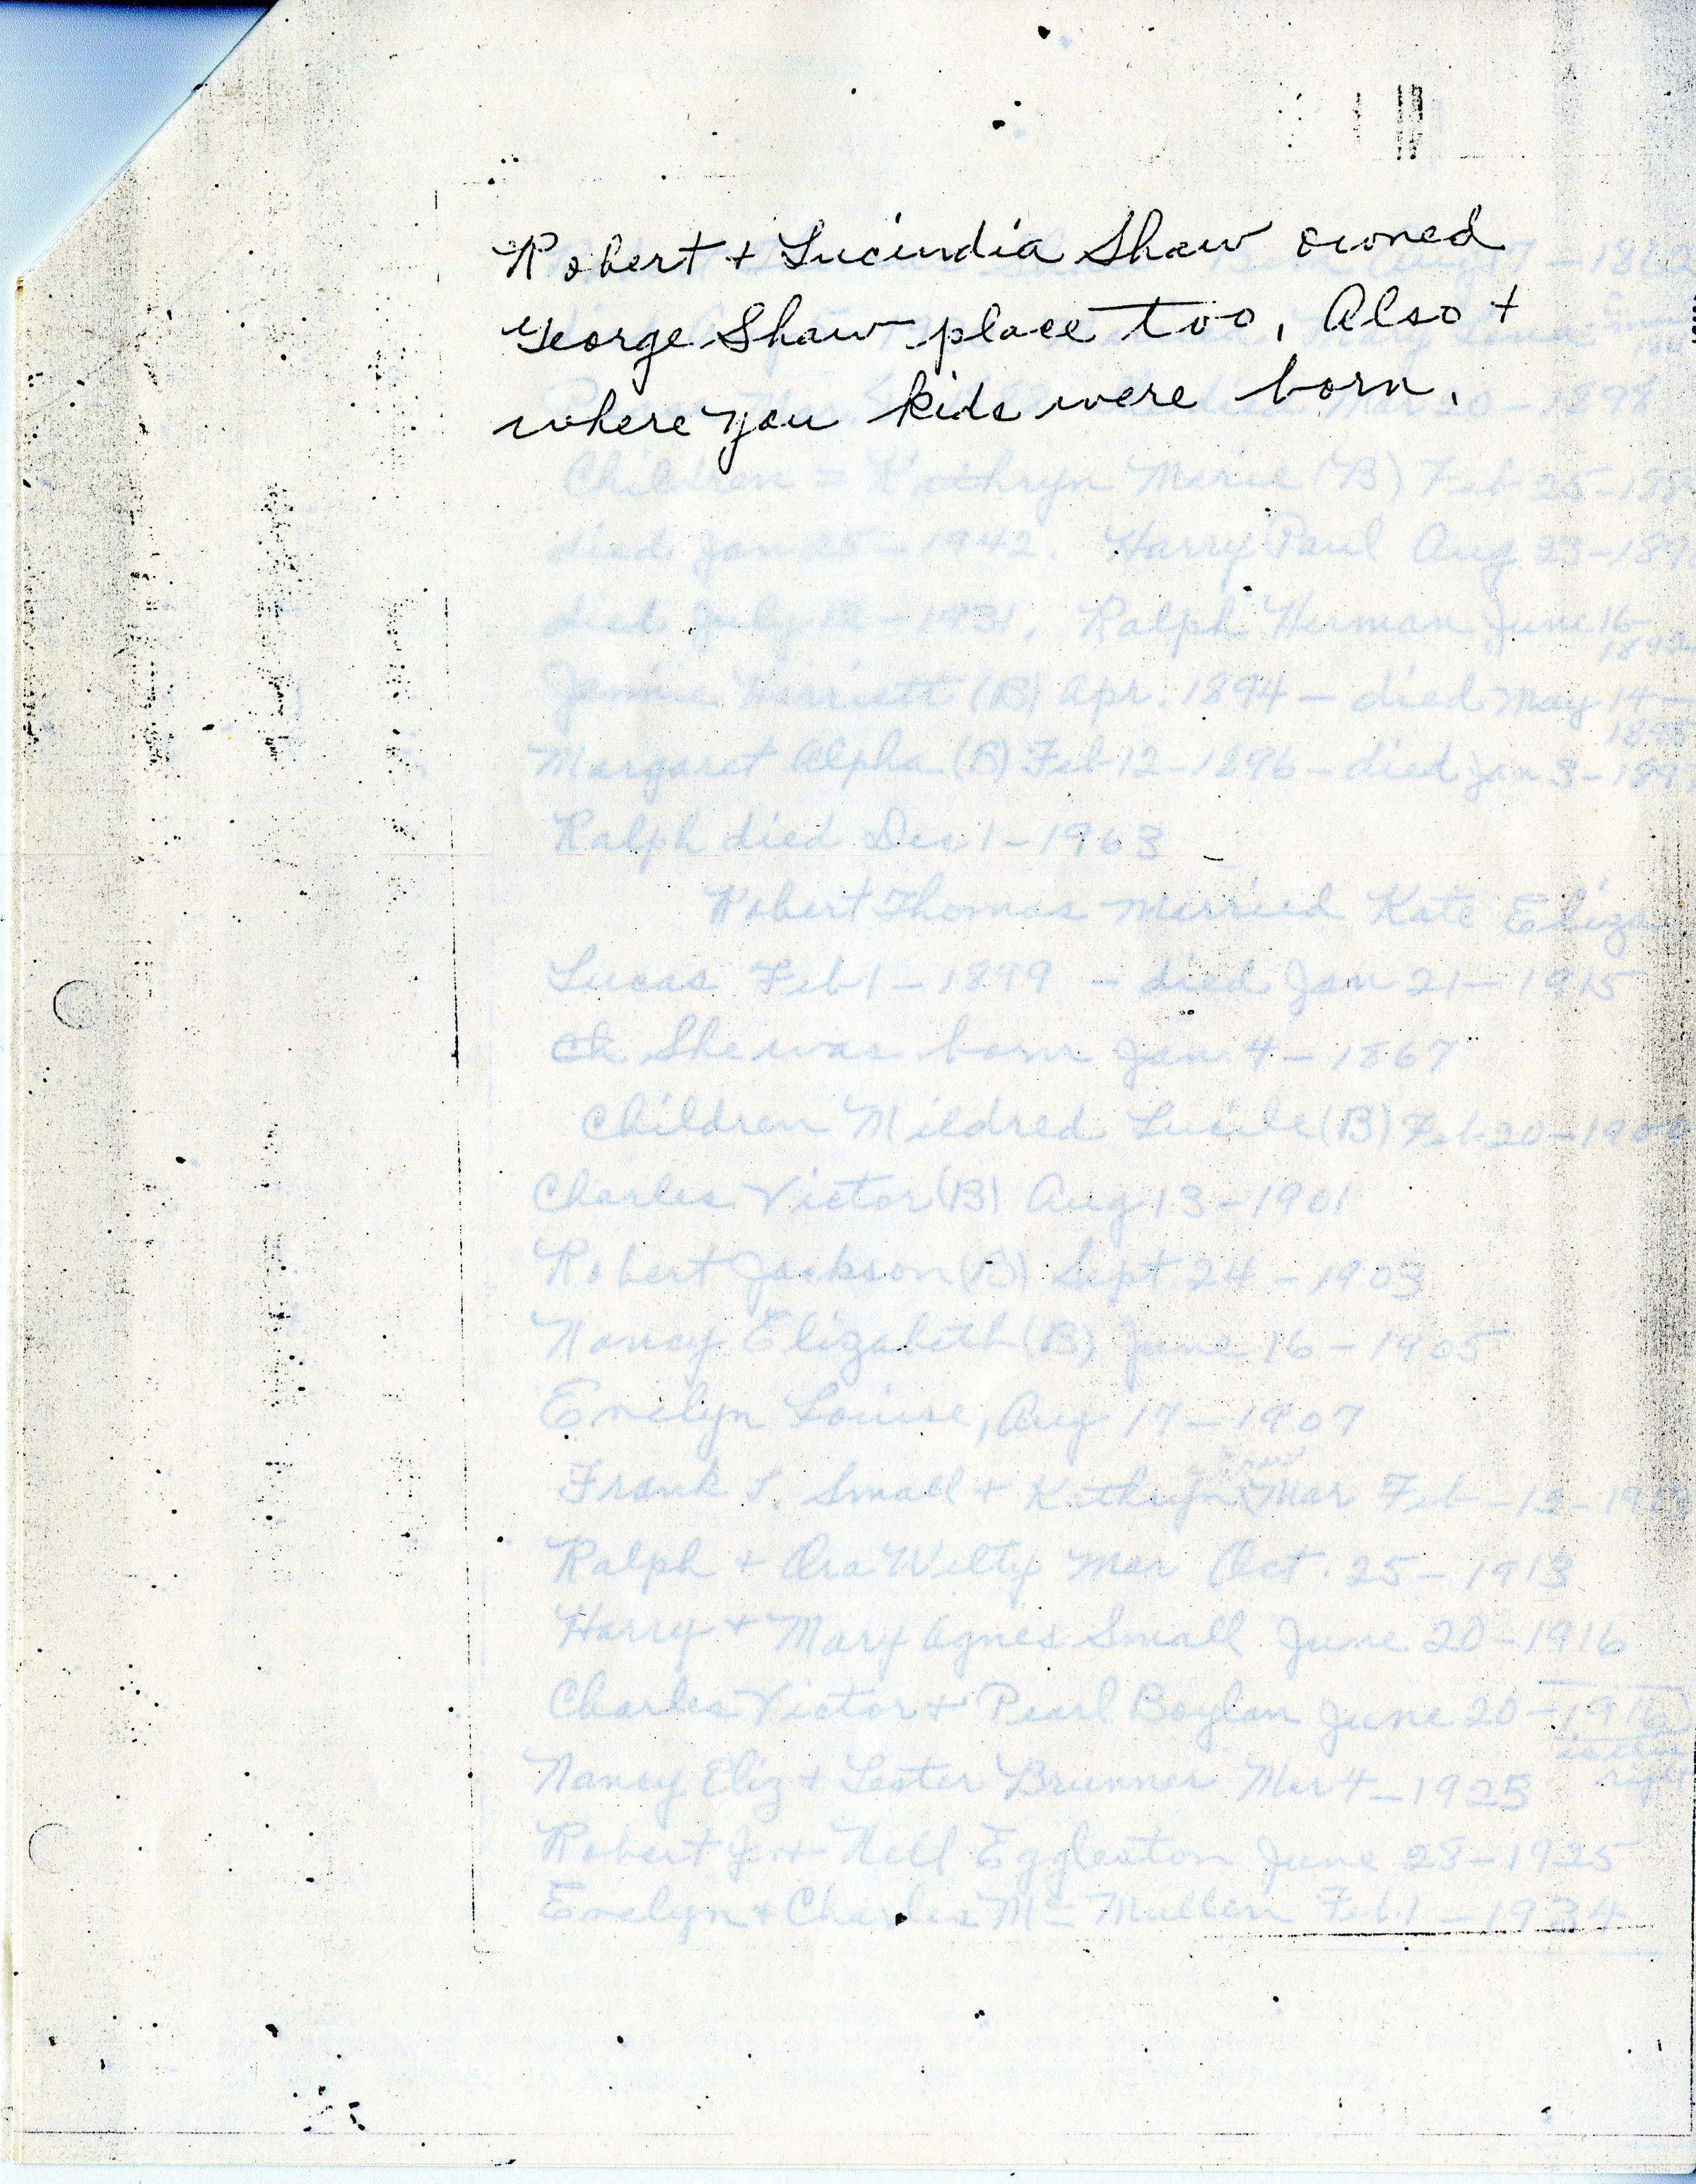 Robert + Lucindia Shaw owned
George Shaw place too, Also +
where you kids were born.
Aug 17 - 1862
Children = Kathryn Marie (B) Feb 25 - 188
died Jan 25 - 1942. Harry Paul Aug 23 - 189
died July - 1931, Ralph Herman June 16 -
1892
Jennie Harriett (B) Apr. 1894 - died May 14 -
1895
Margaret Alpha (B) Feb 12 - 1896 - died Jan 3 - 1897
Ralph died Dec 1 - 1963
Robert Thomas married Kate Eliza
Lucas Feb 1 - 1899 - died Jan 21 - 1915
She was born Jan 4 - 1867
Children Mildred Lucile (B) Feb 20 - 1900
Charles Victor (B) Aug 13 - 1901
Robert Jackson (B) Sept 24 - 1903
Nancy Elizabeth (B) June 16 - 1905
Evelyn Louise, Aug 17 - 1907
Frank S. Small + Kathryn Mar Feb - 191
Ralph + Ora Welty Mar Oct. 25 - 1913
Harry + Mary Agnes Small June 20 - 1916
Charles Victor + Pearl Boylan June 20 - 1916
right
Nancy Eliz + Lester Brunner Mar 4 - 1925
Robert J. + Nell Eggleston June 28 - 1925
Evelyn + Charles Mc Mullen Feb. 1 - 1934